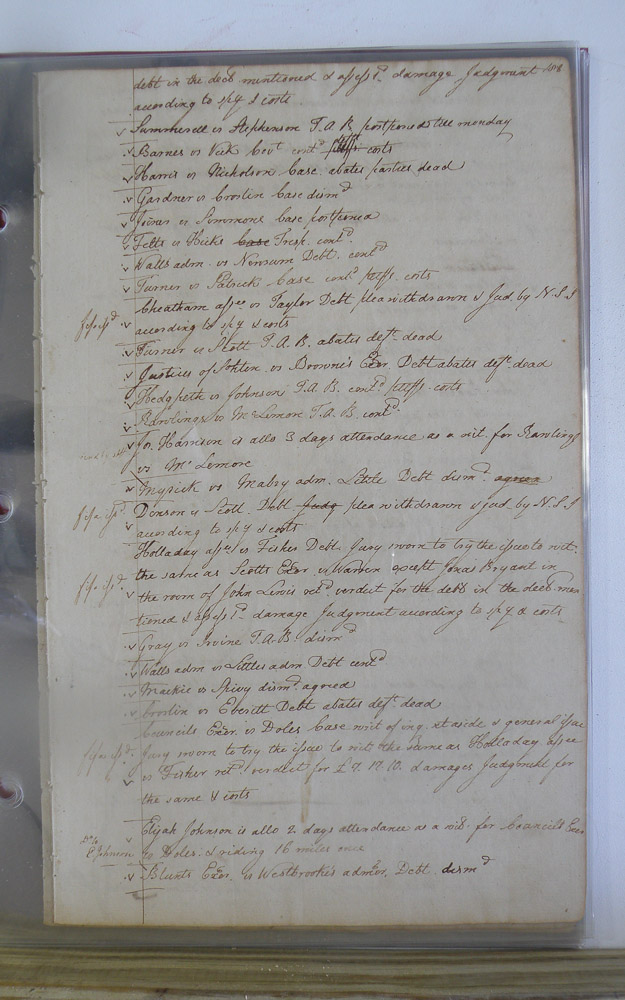 debt in the decl mentioned & assess 1d damage Judgment 418
according to spy & costs
Summerell vs Stephenson T.A.B postponed till monday
Barnes vs Vick Covt contd pltffs costs
Harris vs Nicholson Case abates parties dead
Gardner vs Croslin Case dismd
Joiner vs Simmons Case postponed
Felts vs Hicks Case Tresp. contd.
Watts adm. vs Newsum Debt. contd
Turner vs Patrick Case contd pltffs. costs
Cheatham assee vs Taylor Debt plea withdrawn & Jud. by N.S.I
fifa ssd according to spy & costs
Turner vs Scott T.A.B. abates deft. dead
Justices of Sohton vs Browne's Exor. Debt abates deft. dead
Hedgpeth vs Johnson T.A.B. contd. pltffs. costs
Rawlings vs McLemore T.A.B contd.
Jos. Harrison is allo 3 days attendance as a wit. for Rawlings
vs McLemore
Myrick vs Mabry adm. Settle Debt dismd. agreed
fifa ssd. Denson vs Scott. Debt Judg plea withdrawn & jud. by N.S.I
according to spy & costs
Holladay assee vs Fisher Debt. Jury sworn to try the issue to wit.
the same as Scotts Exor vs Warren except Jonas Bryant in
fifa ssd. the room of John Lewis retd. verdict for the debt in the decl. men
tioned & assess 1d. damage Judgement according to spy & costs
Gray vs Irvine T.A.B. dismd
Watts adm vs Littles adm Debt contd
Mackie vs Spivy dismd. agreed
Croslin vs Everitt Debt abates deft. dead
Councils Exor. vs Doles Case writ of inq. set aside & general issue
fifa ssd. Jury sworn to try the issue to wit the same as Holladay assee
vs Fisher retd. verdict for £7.17.10. damages Judgment for
the same & costs
Elijah Johnson is allo 2 days attendance as a wit. for Councils Exor
E Johnson vs Doles & riding 16 miles once
Blunts Exor. vs Westbrook's admor. Debt dismd